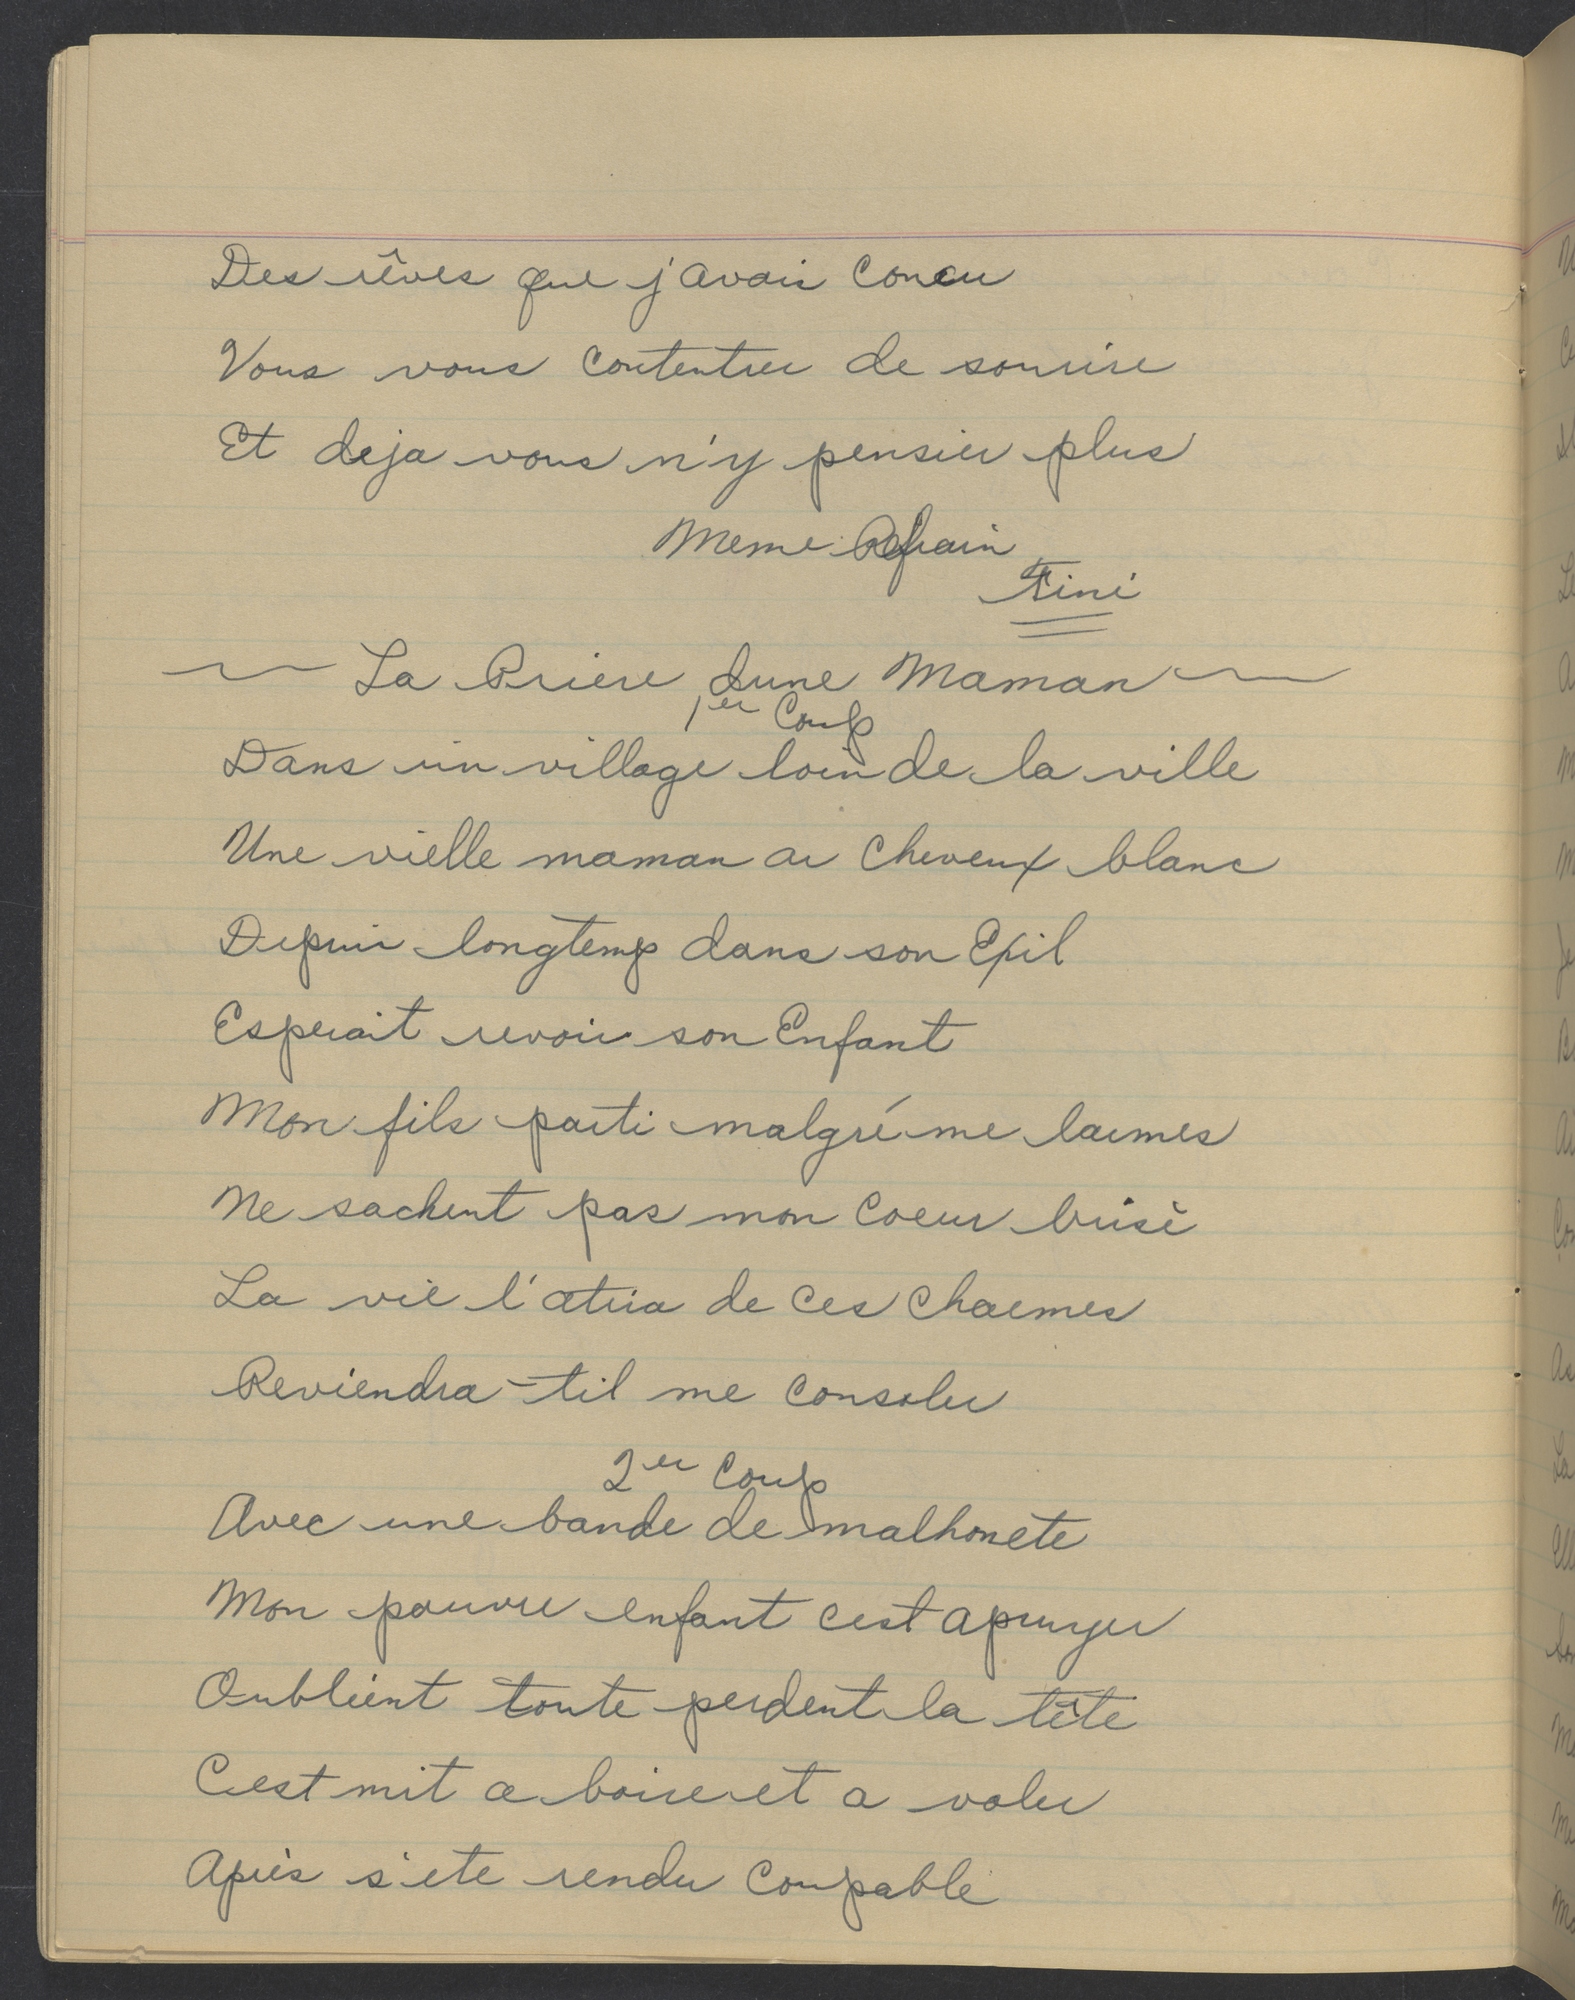 Des rêves que j'avais concu
Vous vous contentier de sourire
Et deja vous n'y pensier plus
Meme Refrain
Fini
La Priere dune Maman
1er Coup
Dans un village loin de la ville
Une vielle maman au cheveux blanc
Depuis longtemp dans son Exil
Esperait revoir son Enfant
Mon fils parti malgré me larmes
Ne sachent pas mon coeur brisé
La vie l'atira de ces charmes
Reviendra-til me consoler
2er Coup
Avec une bande de malhonete
Mon pauvre enfant cest
Oublient toute perdent la tête
Cest mit a boire et a voler
Après s'ete rendu coupable